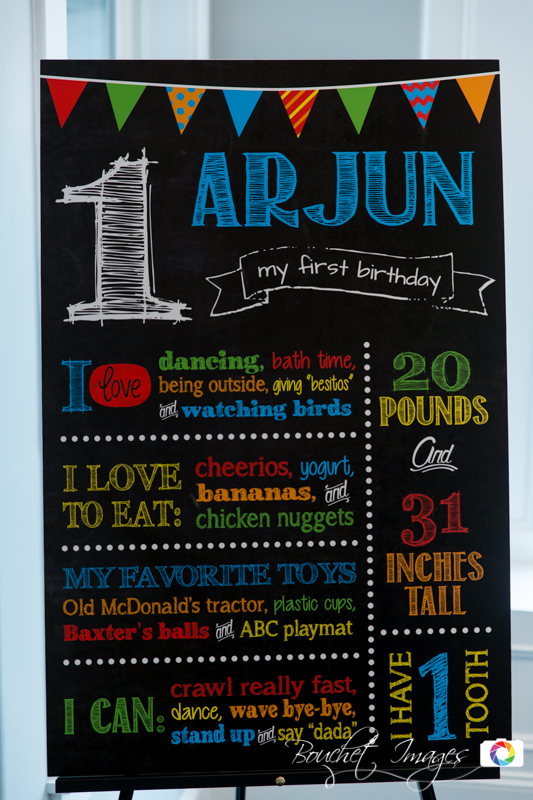 1 ARJUN
my first birthday
I love dancing, bath time,
being outside, giving "besitos"
and watching birds
I LOVE
TO EAT:
cheerios, yogurt,
bananas, and
chicken nuggets
MY FAVORITE TOYS
Old McDonald's tractor, plastic cups,
Baxter's balls and ABC playmat
I CAN:
crawl really fast,
dance, wave bye-bye,
stand up and say "dada"
20
POUNDS
And
31
INCHES
TALL
I HAVE
1
TOOTH
Bouchet Images